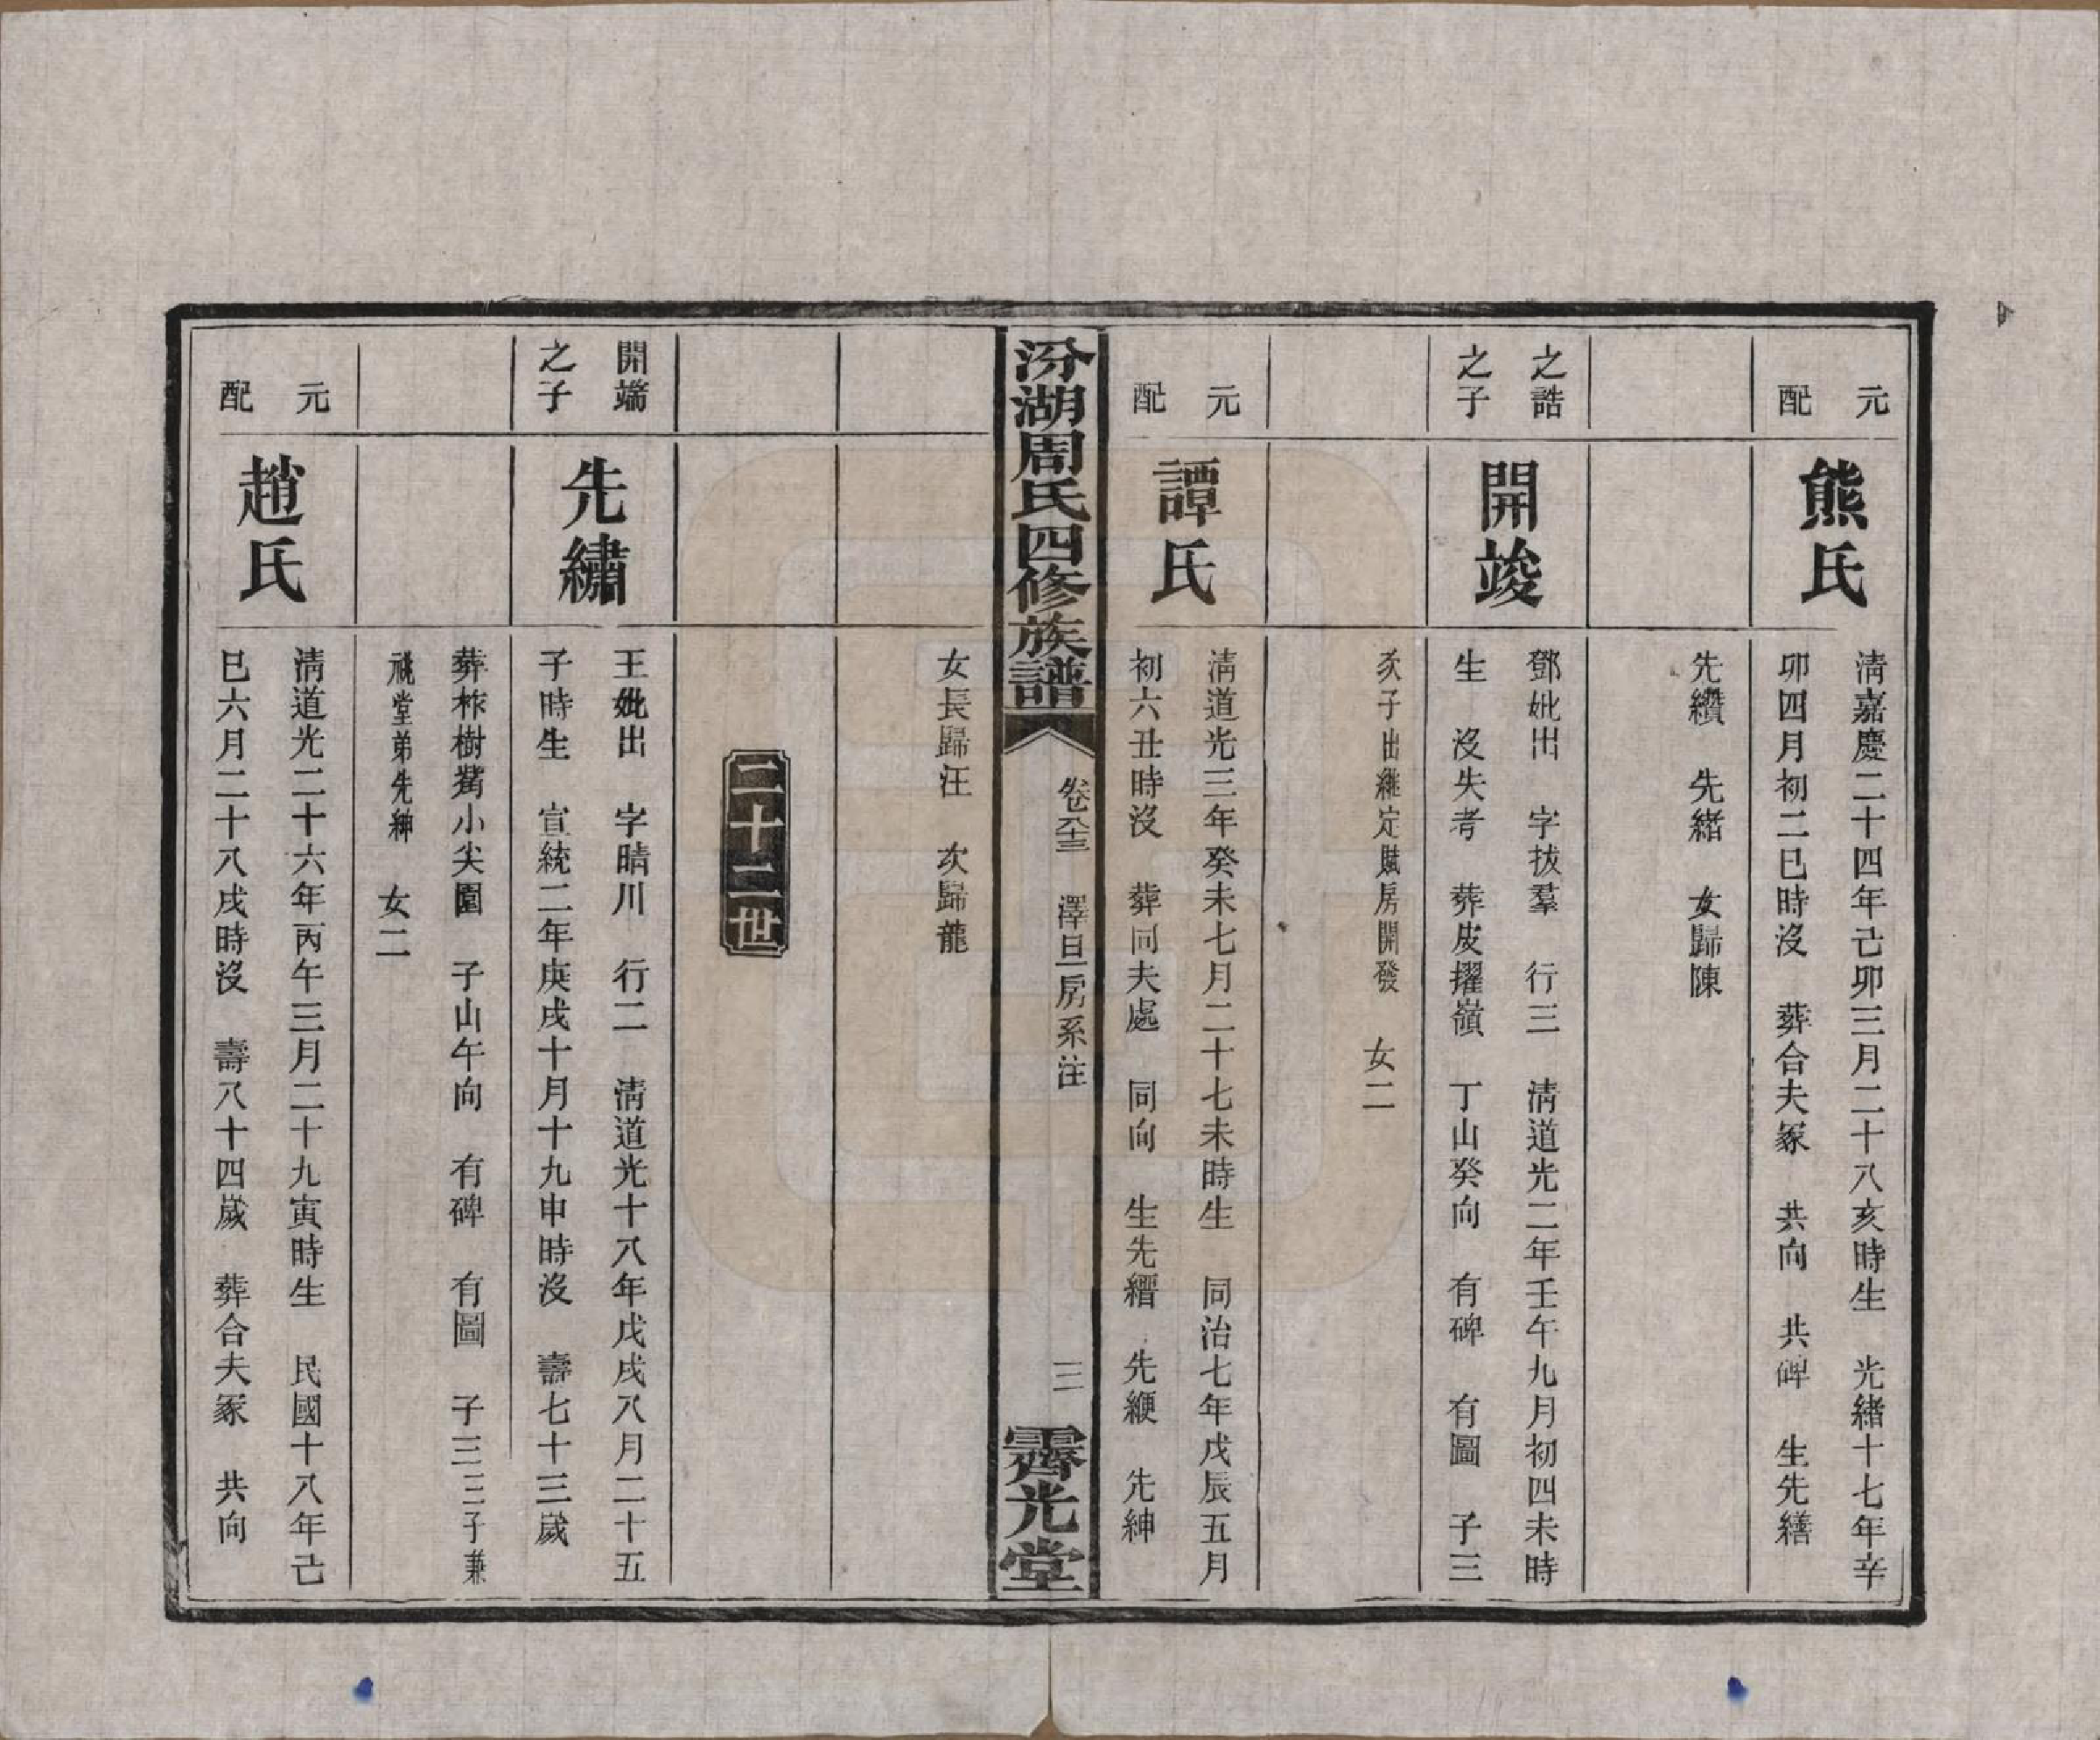 元配
熊氏
淸嘉慶二十四年己卯三月二十八亥時生　光緒十七年辛
卯四月初二巳時沒　葬合夫冢　共向　共碑　生先繕
先纘　先緒　女歸陳
之誥
之子
開竣
鄧妣出　字拔羣　行三　淸道光二年壬午九月初四未時
生　沒失考　葬皮擢嶺　丁山癸向　有碑　有圖　子三
次子出繼定賦房開發　女二
元配
譚氏
淸道光三年癸未七月二十七未時生　同治七年戊辰五月
初六丑時沒　葬同夫處　同向　生先縉　先緶　先紳
汾湖周氏四修族譜
卷六十三　澤旦房系注　三
霽光堂
女長歸汪　次歸龍
二十二世
開端
之子
先繡
王妣出　字晴川　行二　淸道光十八年戊戌八月二十五
子時生　宣統二年庚戌十月十九申時沒　壽七十三歲
葬柞樹觜小尖園　子山午向　有碑　有圖　子三三子兼
祧堂弟先紳　女二
元配
趙氏
淸道光二十六年丙午三月二十九寅時生　民國十八年己
巳六月二十八戌時沒　壽八十四歲　葬合夫冢　共向